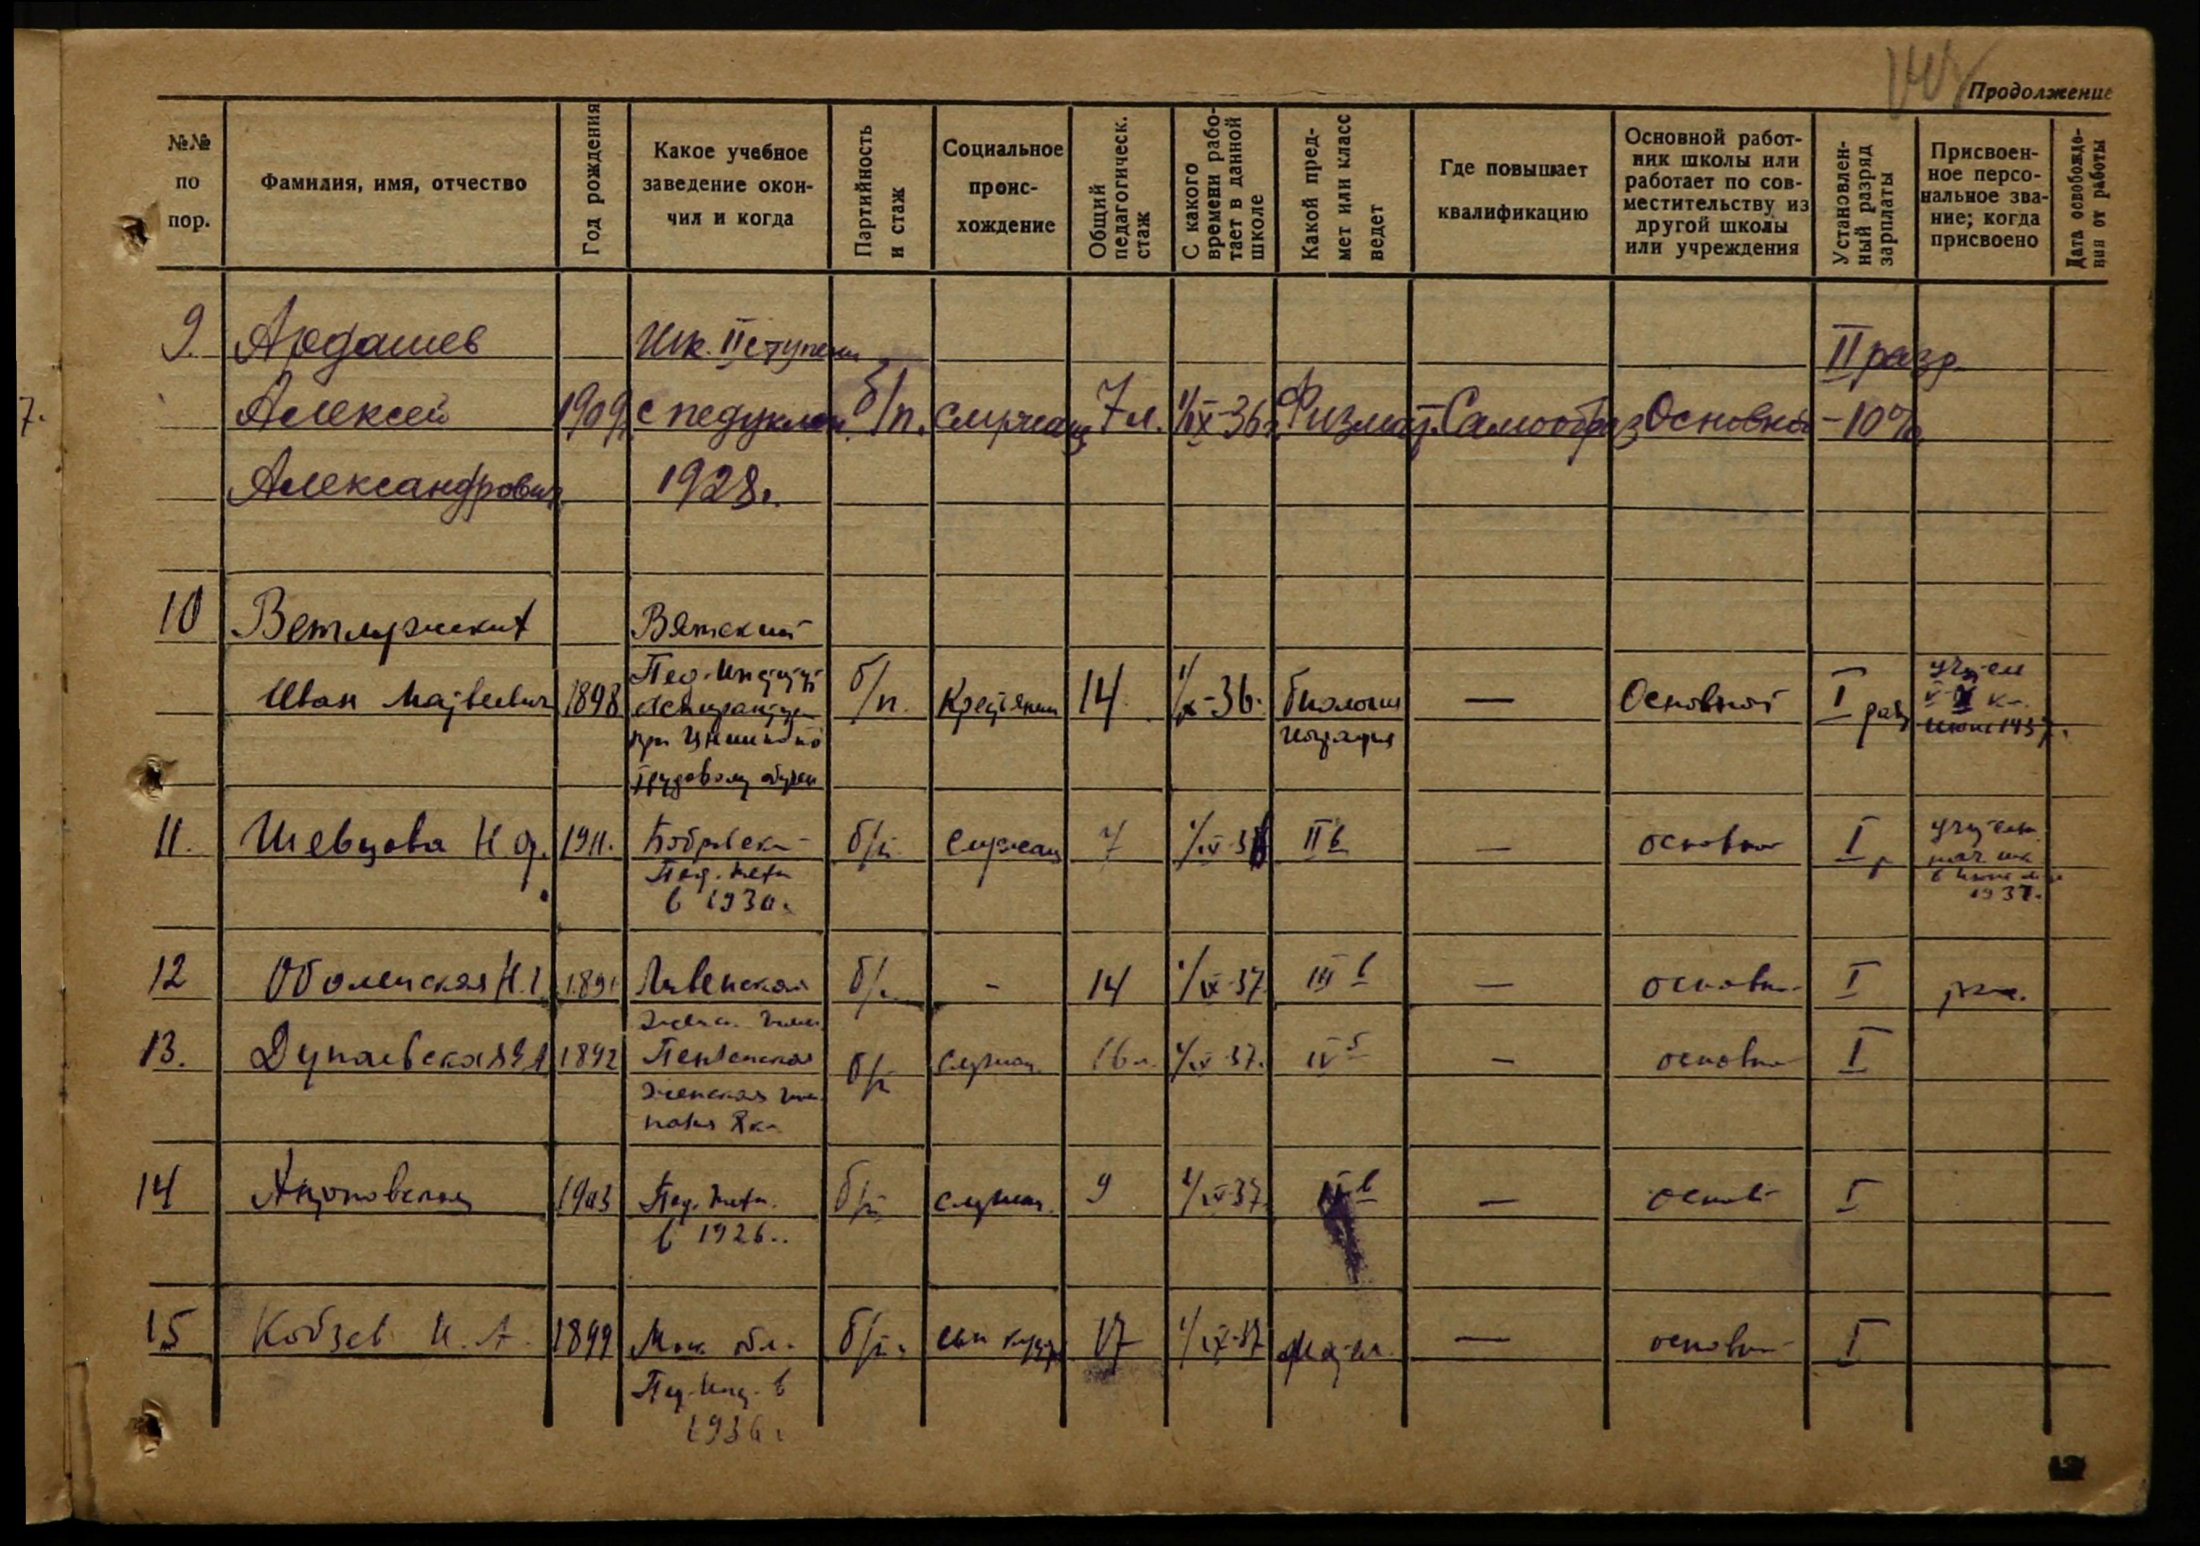 Продолжение
№№ по пор.
Фамилия, имя, отчество
Год рождения
Какое учебное заведение окончил и когда
Партийность и стаж
Социальное происхождение
Общий педагогическ. стаж
С какого времени работает в данной школе
Какой предмет или класс ведет
Где повышает квалификацию
Основной работник школы или работает по совместительству из другой школы или учреждения
Установленный разряд зарплаты
Присвоенное персональное звание; когда присвоено
Дата освобождения от работы
7.
9. Ардашев Шк. II ступени II разр.
Алексей 1909 с педуклон. б/п. служащ 7 л. 1/IX-36 г. Физмат. Самообраз Основной -10%
Александрович 1928 г.
10 Ветлужских Вятский
Иван Матвеевич 1898 Пед. Институт б/п. Крестьянин 14. 1/X-36. биология — Основной I раз
Аспирантура
при
трудовому обучен
11. Шевцова Н 1911. Бобровск б/п служащ 7 1/IX-36 II в — основной I р
Пед. техн
в 1930 г.
1937.
12 Оболенская Н. 1891 Ливенская б/п — 14 1/IX-37 III в — основн I
женск. гимн.
13. Дунаевская 1892 Пензенская б/п служащ. 16 л. 1/IX-37. IV б — основн I
женская гимназия 8 кл
14 1903 Пед. техн. б/п служащ. 9 1/IX-37. в — основ I
в 1926 г.
15 Кобзев И. А. 1899 обл. б/п. сын 17 1/IX-37 — основн I
Пед. Инст. в
1936 г